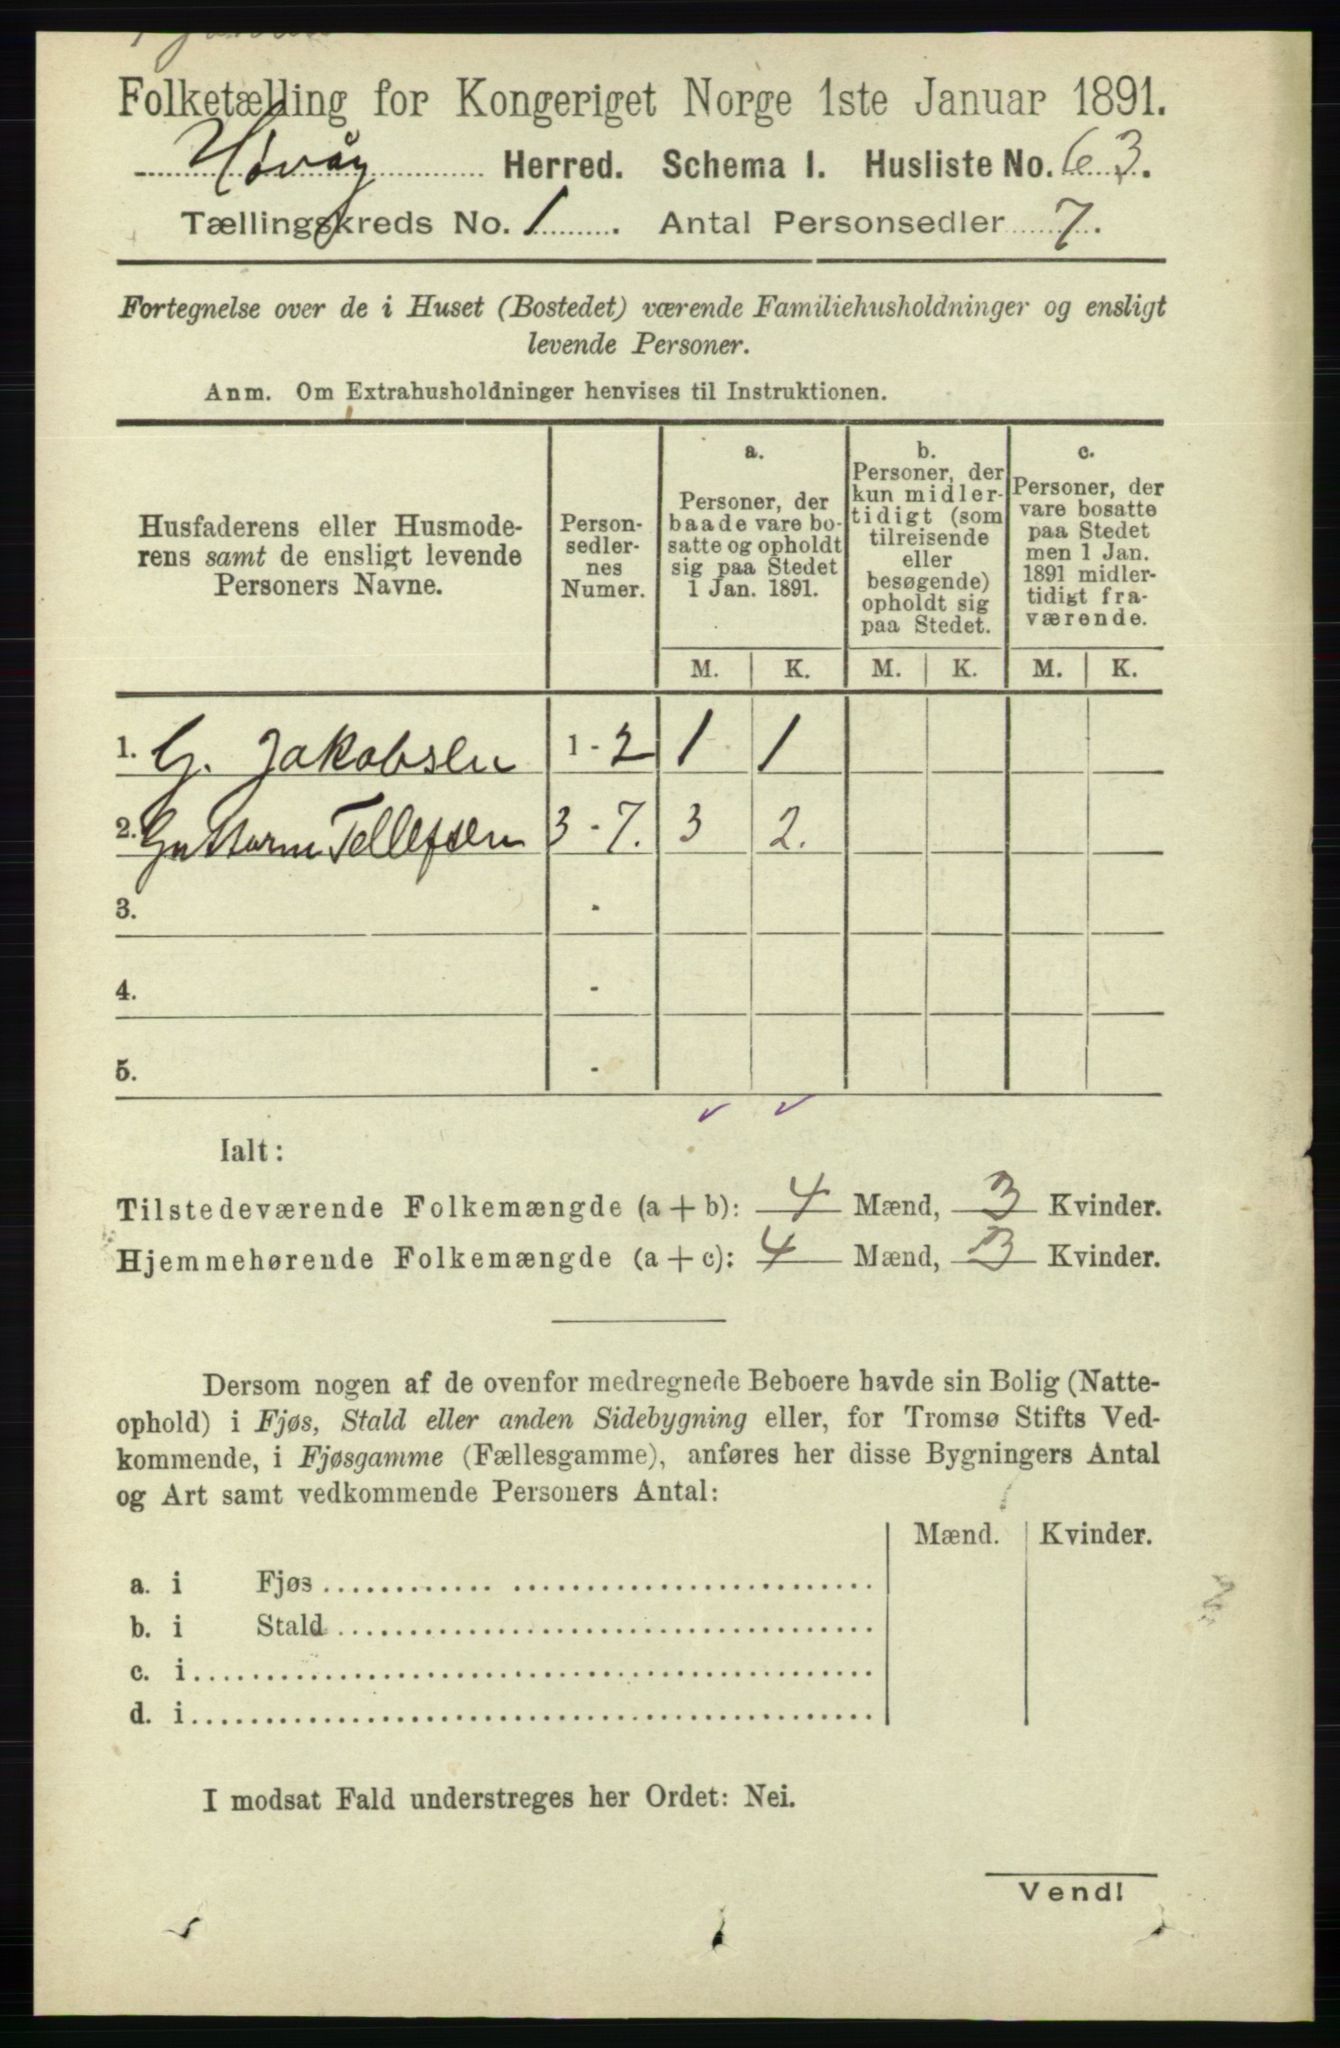 Folketælling for Kongeriget Norge 1ste Januar 1891.
Høvåg Herred. Schema I. Husliste No. 63.
Tællingskreds No. 1. Antal Personsedler 7.
Fortegnelse over de i Huset (Bostedet) værende Familiehusholdninger og ensligt
levende Personer.
Anm. Om Extrahusholdninger henvises til Instruktionen.
Husfaderens eller Husmode-
rens samt de ensligt levende
Personers Navne.
Person-
sedler-
nes
Numer.
a.
Personer, der
baade vare bo-
satte og opholdt
sig paa Stedet
1 Jan. 1891.
b.
Personer, der
kun midler-
tidigt (som
tilreisende
eller
besøgende)
opholdt sig
paa Stedet.
c.
Personer, der
vare bosatte
paa Stedet
men 1 Jan.
1891 midler-
tidigt fra-
værende.
M. K. M. K. M. K.
1. G. Jakobsen 1 - 2 1 1
2. Guttorm Tellefsen 3 - 7. 3 2.
3. -
4. -
5. -
Ialt:
Tilstedeværende Folkemængde (a + b): 4 Mænd, 3 Kvinder.
Hjemmehørende Folkemængde (a + c): 4 Mænd, 3 Kvinder.
Dersom nogen af de ovenfor medregnede Beboere havde sin Bolig (Natte-
ophold) i Fjøs, Stald eller anden Sidebygning eller, for Tromsø Stifts Ved-
kommende, i Fjøsgamme (Fællesgamme), anføres her disse Bygningers Antal
og Art samt vedkommende Personers Antal:
Mænd. Kvinder.
a. i Fjøs
b. i Stald
c. i
d. i
I modsat Fald understreges her Ordet: Nei.
Vend!